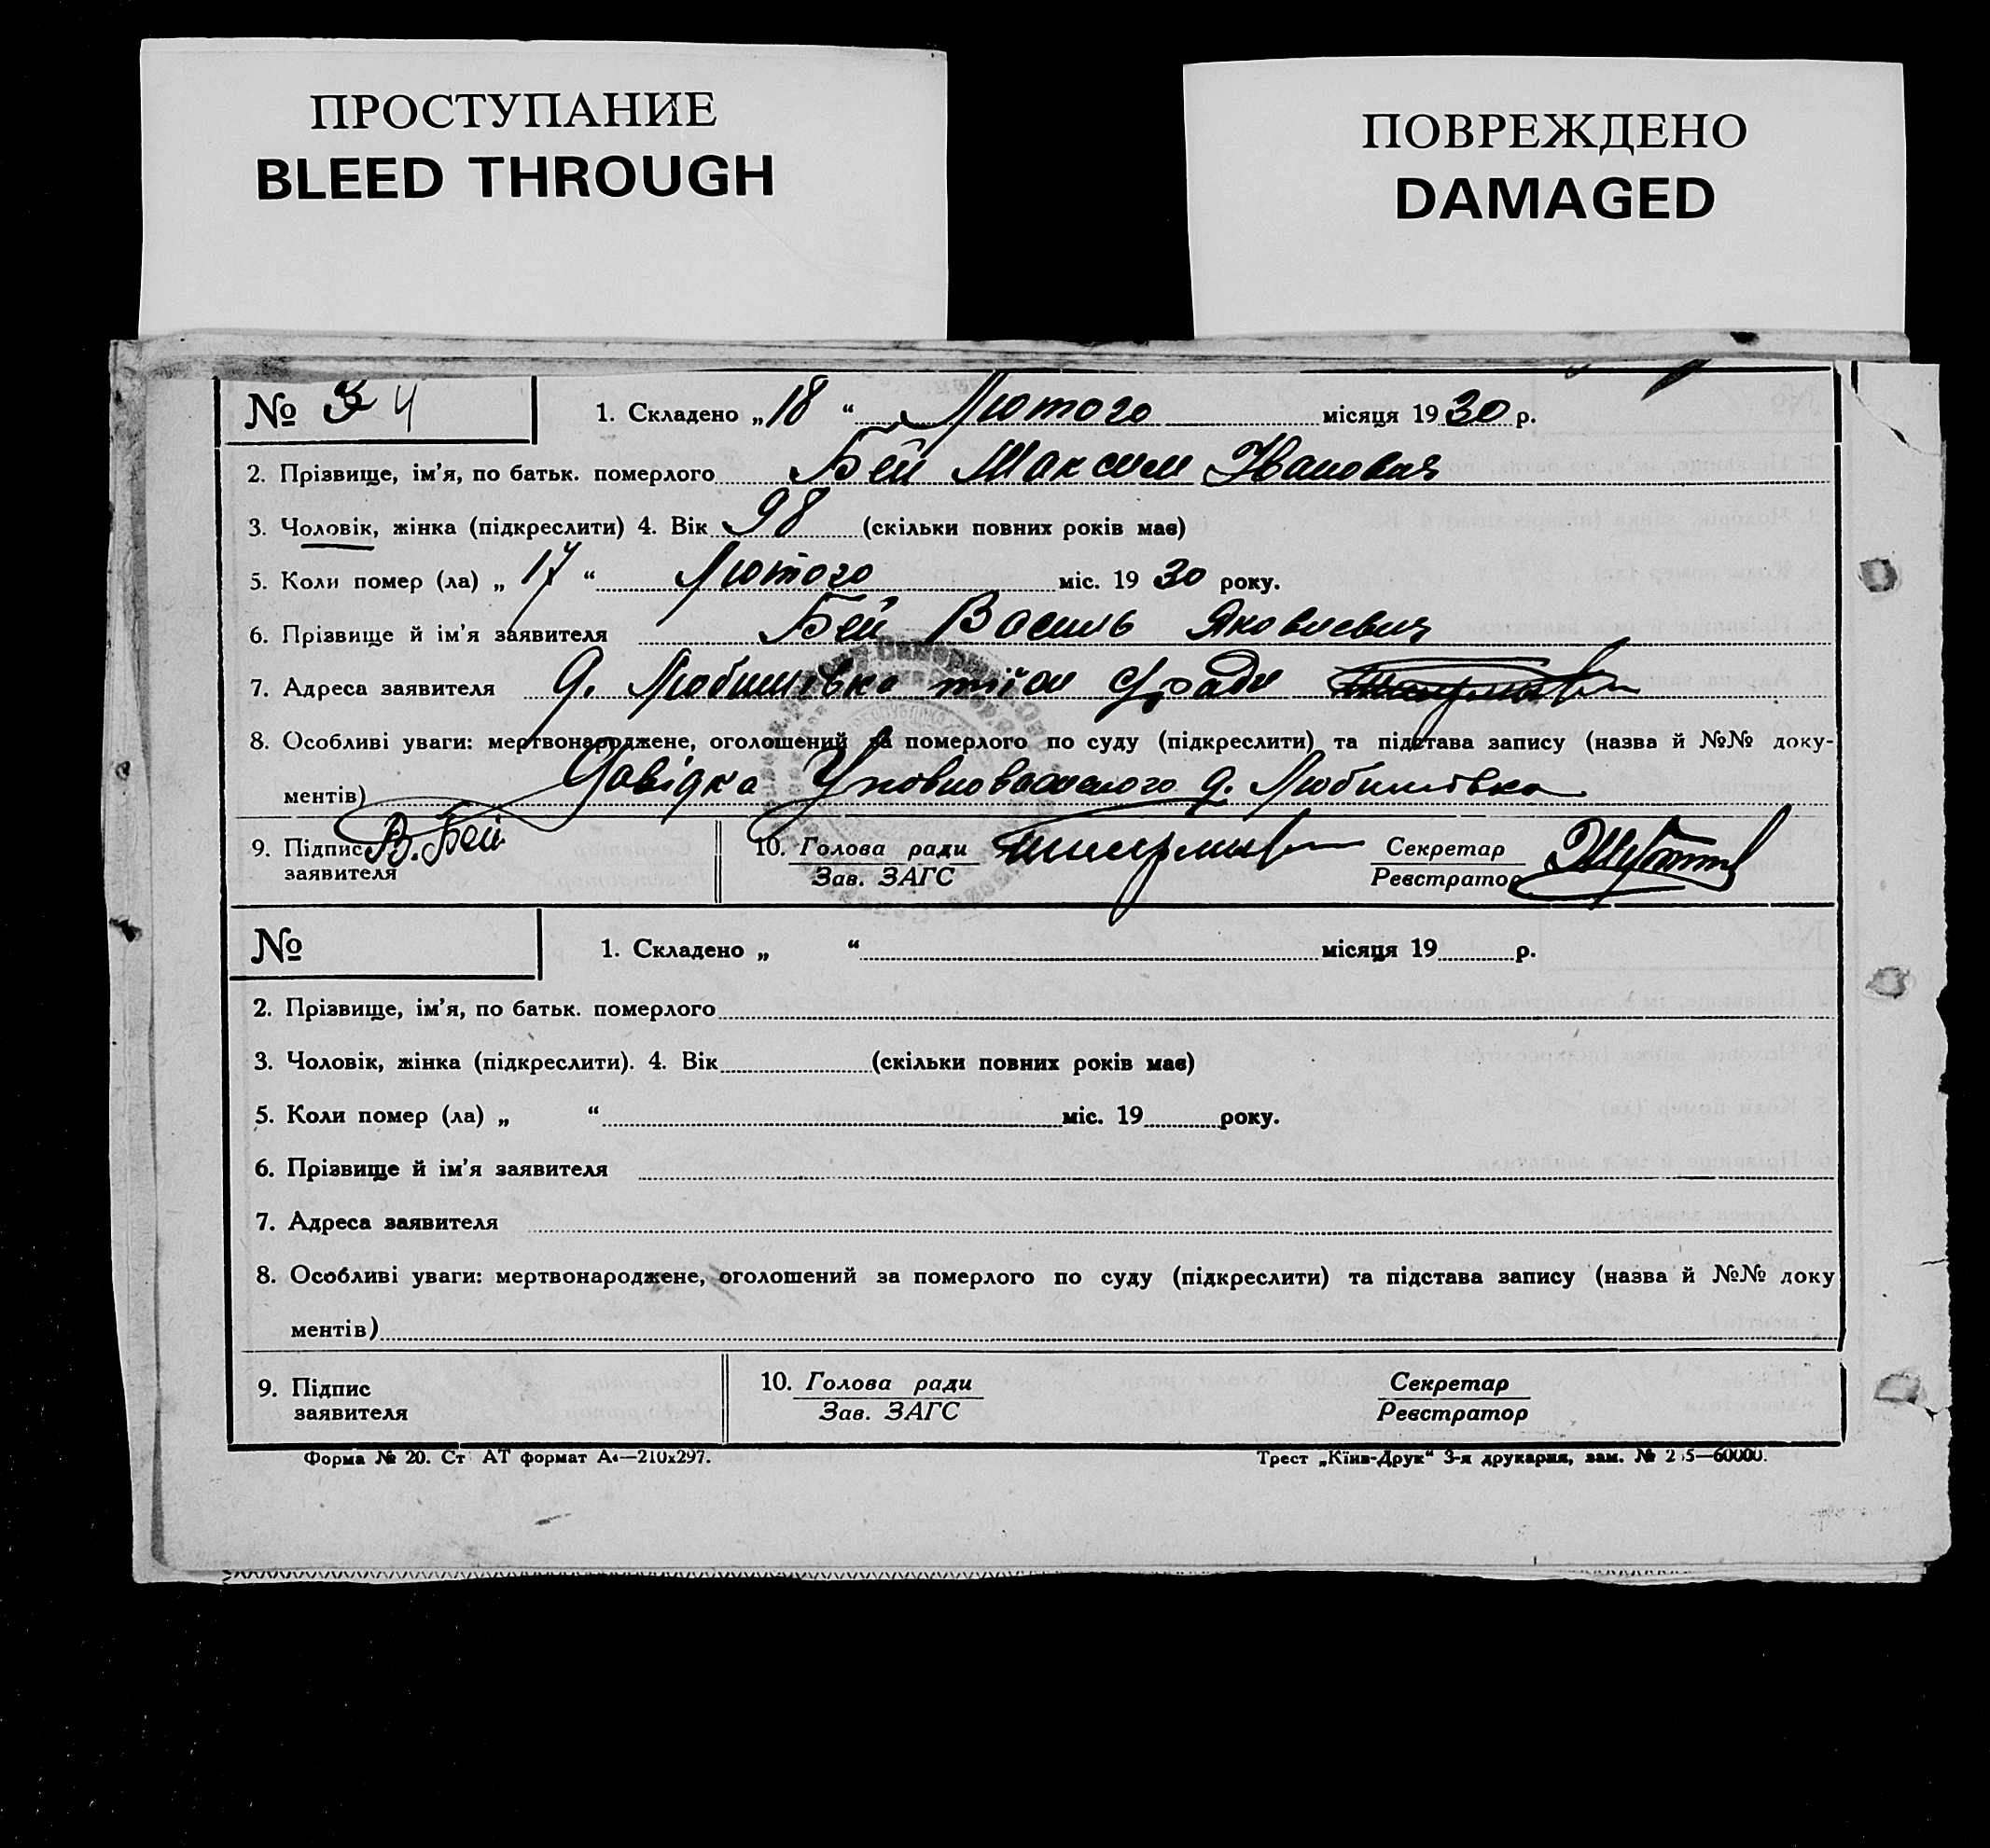 ПРОСТУПАНИЕ
BLEED THROUGH
ПОВРЕЖДЕНО
DAMAGED
№ 4 1. Складено „18“ Лютого місяця 1930 р.
2. Прізвище, ім'я, по батьк. померлого Бей Максим Іванович
3. Чоловік, жінка (підкреслити) 4. Вік 98 (скільки повних років має)
5. Коли помер (ла) „17“ Лютого міс. 1930 року.
6. Прізвище й ім'я заявителя Бей Василь Яковлевич
7. Адреса заявителя д. Любимівка тієї с/ради
8. Особливі уваги: мертвонароджене, оголошений за померлого по суду (підкреслити) та підстава запису (назва й №№ доку-
ментів) Довідка Уповноваженого д. Любимівка
9. Підпис заявителя В. Бей 10. Голова ради Зав. ЗАГС Секретар Реєстратор
№ 1. Складено „ “ місяця 19 р.
2. Прізвище, ім'я, по батьк. померлого
3. Чоловік, жінка (підкреслити). 4. Вік (скільки повних років має)
5. Коли помер (ла) „ “ міс. 19 року.
6. Прізвище й ім'я заявителя
7. Адреса заявителя
8. Особливі уваги: мертвонароджене, оголошений за померлого по суду (підкреслити) та підстава запису (назва й №№ доку
ментів)
9. Підпис заявителя 10. Голова ради Зав. ЗАГС Секретар Реєстратор
Форма № 20. Ст АТ формат А4—210х297. Трест „Київ-Друк“ 3-я друкарня, зам. №